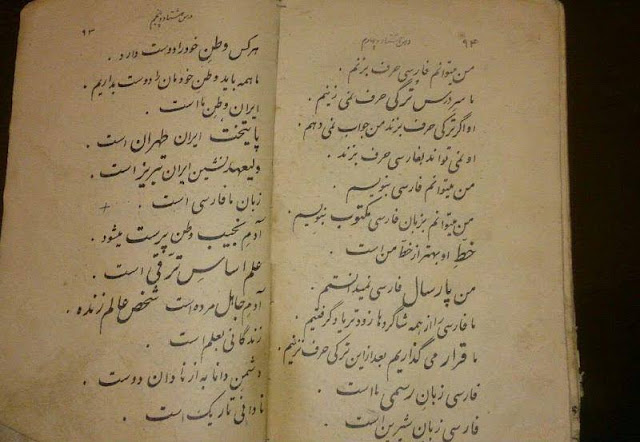 درس هشتاد و چهارم
من میتوانم فارسی حرف بزنم .
ما سر درس ترکی حرف نمی زنیم .
او اگر ترکی حرف بزند من جواب نمی دهم .
او نمی تواند بفارسی حرف بزند .
من میتوانم فارسی بنویسم .
من میتوانم بزبان فارسی مکتوب بنویسم .
خط او بهتر از خط من است .
من پارسال فارسی نمیدانستم .
ما فارسی را از همه شاگردها زودتر یاد گرفتیم .
ما قرار می گذاریم بعد از این ترکی حرف نزنیم .
فارسی زبان رسمی ما است .
فارسی زبان شیرین است .
درس هشتاد و پنجم ۹۳
هر کس وطن خود را دوست دارد .
ما همه باید وطن خودمان را دوست بداریم .
ایران وطن ما است .
پایتخت ایران طهران است .
ولیعهد نشین ایران تبریز است .
زبان ما فارسی است .
آدم نجیب وطن پرست میشود .
علم اساس ترقی است .
آدم جاهل مرده است شخص عالم زنده .
زندگانی بعلم است .
دشمن دانا به از نادان دوست .
نادانی تاریک است .